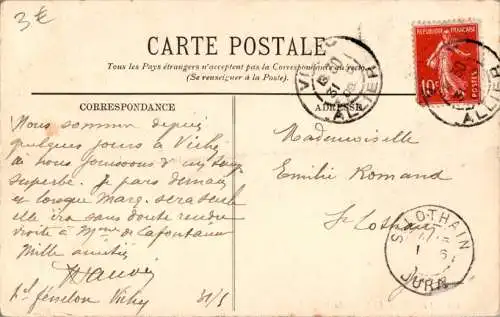 3€
CARTE POSTALE
Tous les Pays étrangers n'acceptent pas la Correspondance au recto
(Se renseigner à la Poste).
REPUBLIQUE FRANÇAISE
10c
POSTES
VICHY
ALLIER
ALLIER
CORRESPONDANCE
ADRESSE
Nous sommes depuis
quelques jours à Vichy
et nous jouissons d'un temps
superbe. Je pars demain
et lorsque Marg. sera seule
elle ira sans doute rendre
visite à Mme de Lafontaine
Mille amitiés
Hel Fénelon Vichy
31/5
Mademoiselle
Emilie Romand
St Lothain
ST LOTHAIN
JURA